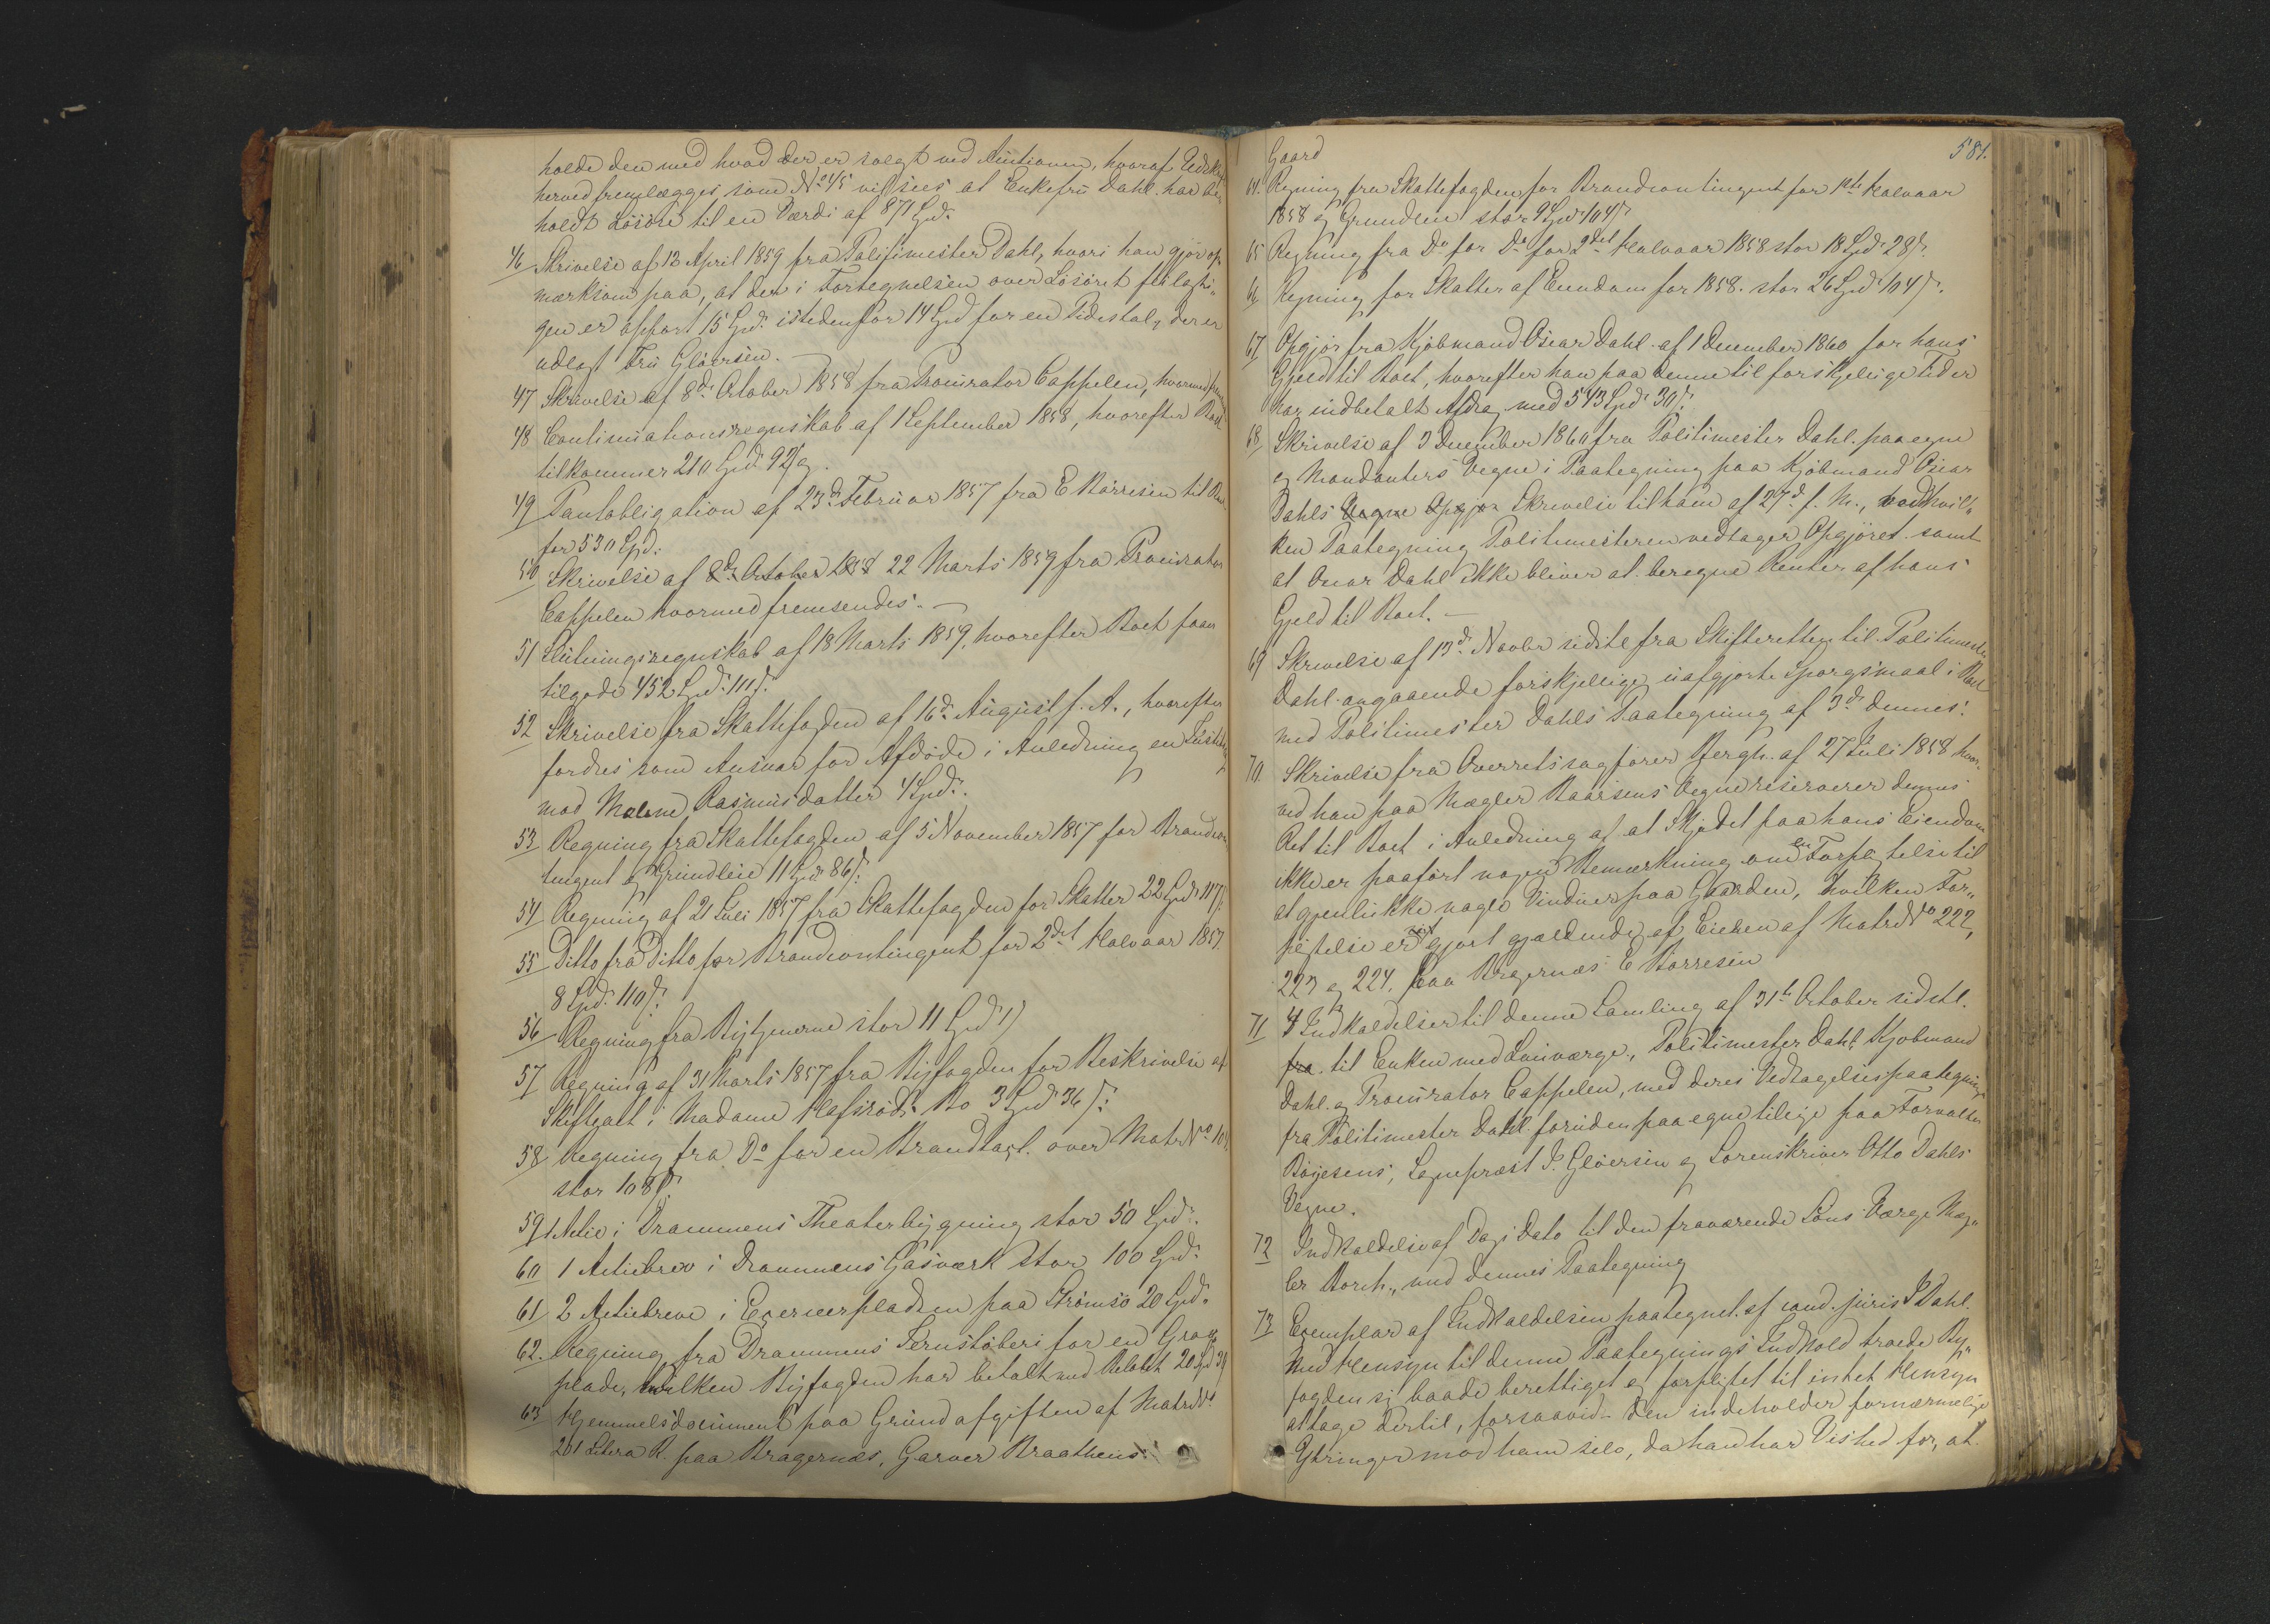 holde den med hvad der er solgt ved Auctionen, hvoraf Udskr
herved fremlægges som No 45 vil sees at Enkefru Dahl har be
holdt Løsøre til en Værdi af 871 Spd.
46 Skrivelse af 12 April 1859 fra Politimester Dahl, hvori han gjør op
mærksom paa, at der i Fortegnelsen over Løsøret
gen er opført 15 Spd. istedenfor 14 Spd for en Pidestal, der er
udlagt Fru Gløersen.
47 Skrivelse af 8d October 1858 fra Procurator Cappelen, hvormed frem
48 Continuationsregnskab af 1 September 1858, hvorefter Boet
tilkommer 210 Spd 92
49 Pantobligation af 23d Februar 1857 fra E Børresen til
for 530 Spd.
50 Skrivelse af 8d October 1858 22 Marts 1859 fra Procurator
Cappelen hvormed fremsendes. —
51 Slutningsregnskab af 18 Marts 1859, hvorefter Boet faar
tilgode 452 Spd. 111 s.
52 Skrivelse fra Skattefogden af 16d August f. A., hvorefter
fordres som Ansvar for Afdøde i Anledning en
mod Malene Rasmusdatter 4 Spd.
53 Regning fra Skattefogden af 5 November 1857 for Brandcon
tingent og Grundleie 11 Spd 86 s.
54 Regning af 21 Juli 1857 fra Skattefogden for Skatter 22 Spd
55 Ditto fra Ditto for Brandcontingent for 2det Halvaar 1857.
8 Spd. 110 s.
56 Regning fra Bytjenerne stor 11 Spd
57 Regning af 31 Marts 1857 fra Byfogden for Beskrivelse af
i Madame Bo 3 Spd 36 s.
58 Regning fra Do for en Brandtaxt. over Matr No
stor 108 s.
59 1 Actie i Drammens Theaterbygning stor 50 Spd.
60 1 Actiebrev i Drammens Gasværk stor 100 Spd.
61 2 Actiebreve i Exerceerpladsen paa Strømsø 20 Spd.
62. Regning fra Drammens Jernstøberi for en Grav
plade, hvilken Byfogden har betalt med Beløbet 20 Spd
63 Hjemmelsdocument paa Grundafgiften af Matr No
201 Litera R. paa Bragernæs, Garver Braathens
581.
Gaard
64. Regning fra Skattefogden for Brandcontingent for 1ste Halvaar
1858 og Grundleie stor 9 Spd 104 s
65 Regning fra Do for Do for 2det Halvaar 1858 stor 18 Spd 28 s.
66 Regning for Skatter af Eiendom for 1858. stor 26 Spd 104 s.
67 Opgjør fra Kjøbmand Oscar Dahl af 1 December 1860 for hans
Gjeld til Boet, hvorefter han paa denne til forskjellige Tider
har indbetalt Afdrag med 543 Spd 30 s.
68 Skrivelse af 3 December 1860 fra Politimester Dahl paa egne
og Mandanters Vegne i Paategning paa Kjøbmand Oscar
Dahls Vegne Opgjør Skrivelse til ham af 27d f. M., ved hvil„
ken Paategning Politimesteren vedtager Opgjøret samt
at Oscar Dahl ikke bliver at beregne Renter af hans
Gjeld til Boet. —
69 Skrivelse af 13d Novbr sidstl fra Skifteretten til Politimester
Dahl angaaende forskjellige uafgjorte Spørgsmaal i Boet
med Politimester Dahls Paategning af 3d dennes.
70 Skrivelse fra Overretssagfører Bergh. af 27 Juli 1858 hvor„
ved han paa Mægler Baarsens Vegne reserverer dennes
Ret til Boet i Anledning af at Skjødet paa hans Eiendom
ikke er paaført nogen Bemærkning om en Forpligtelse til
at gjenlukke nogle Vinduer paa Gaarden, hvilken For„
pligtelse er gjort gjældende af Eieren af Matr No 222,
223 og 224. paa Bragernæs E Børresen
71 4 Indkaldelser til denne Samling af 31te October sidstl.
fra til Enken med Laugværge, Politimester Dahl, Kjøbmand
Dahl og Procurator Cappelen, med deres Vedtagelsespaategning
fra Politimester Dahl foruden paa egne tillige paa Forvalter
Bøyesens, Sogneprest J. Gløersen og Sorenskriver Otto Dahls
Vegne.
72 Indkaldelse af Dags Dato til den fraværende Søns Værge Mæg„
ler Borch., med dennes Paategning
73 Exemplar af Indkaldelsen paategnet af cand. juris P Dahl.
Med Hensyn til denne Paategnings Indhold troede By„
fogden sig baade berettiget og forpligtet til intet Hensyn
at tage dertil, forsaavid den indeholder fornærmelige
Ytringer mod ham selv, da han har Vished for, at